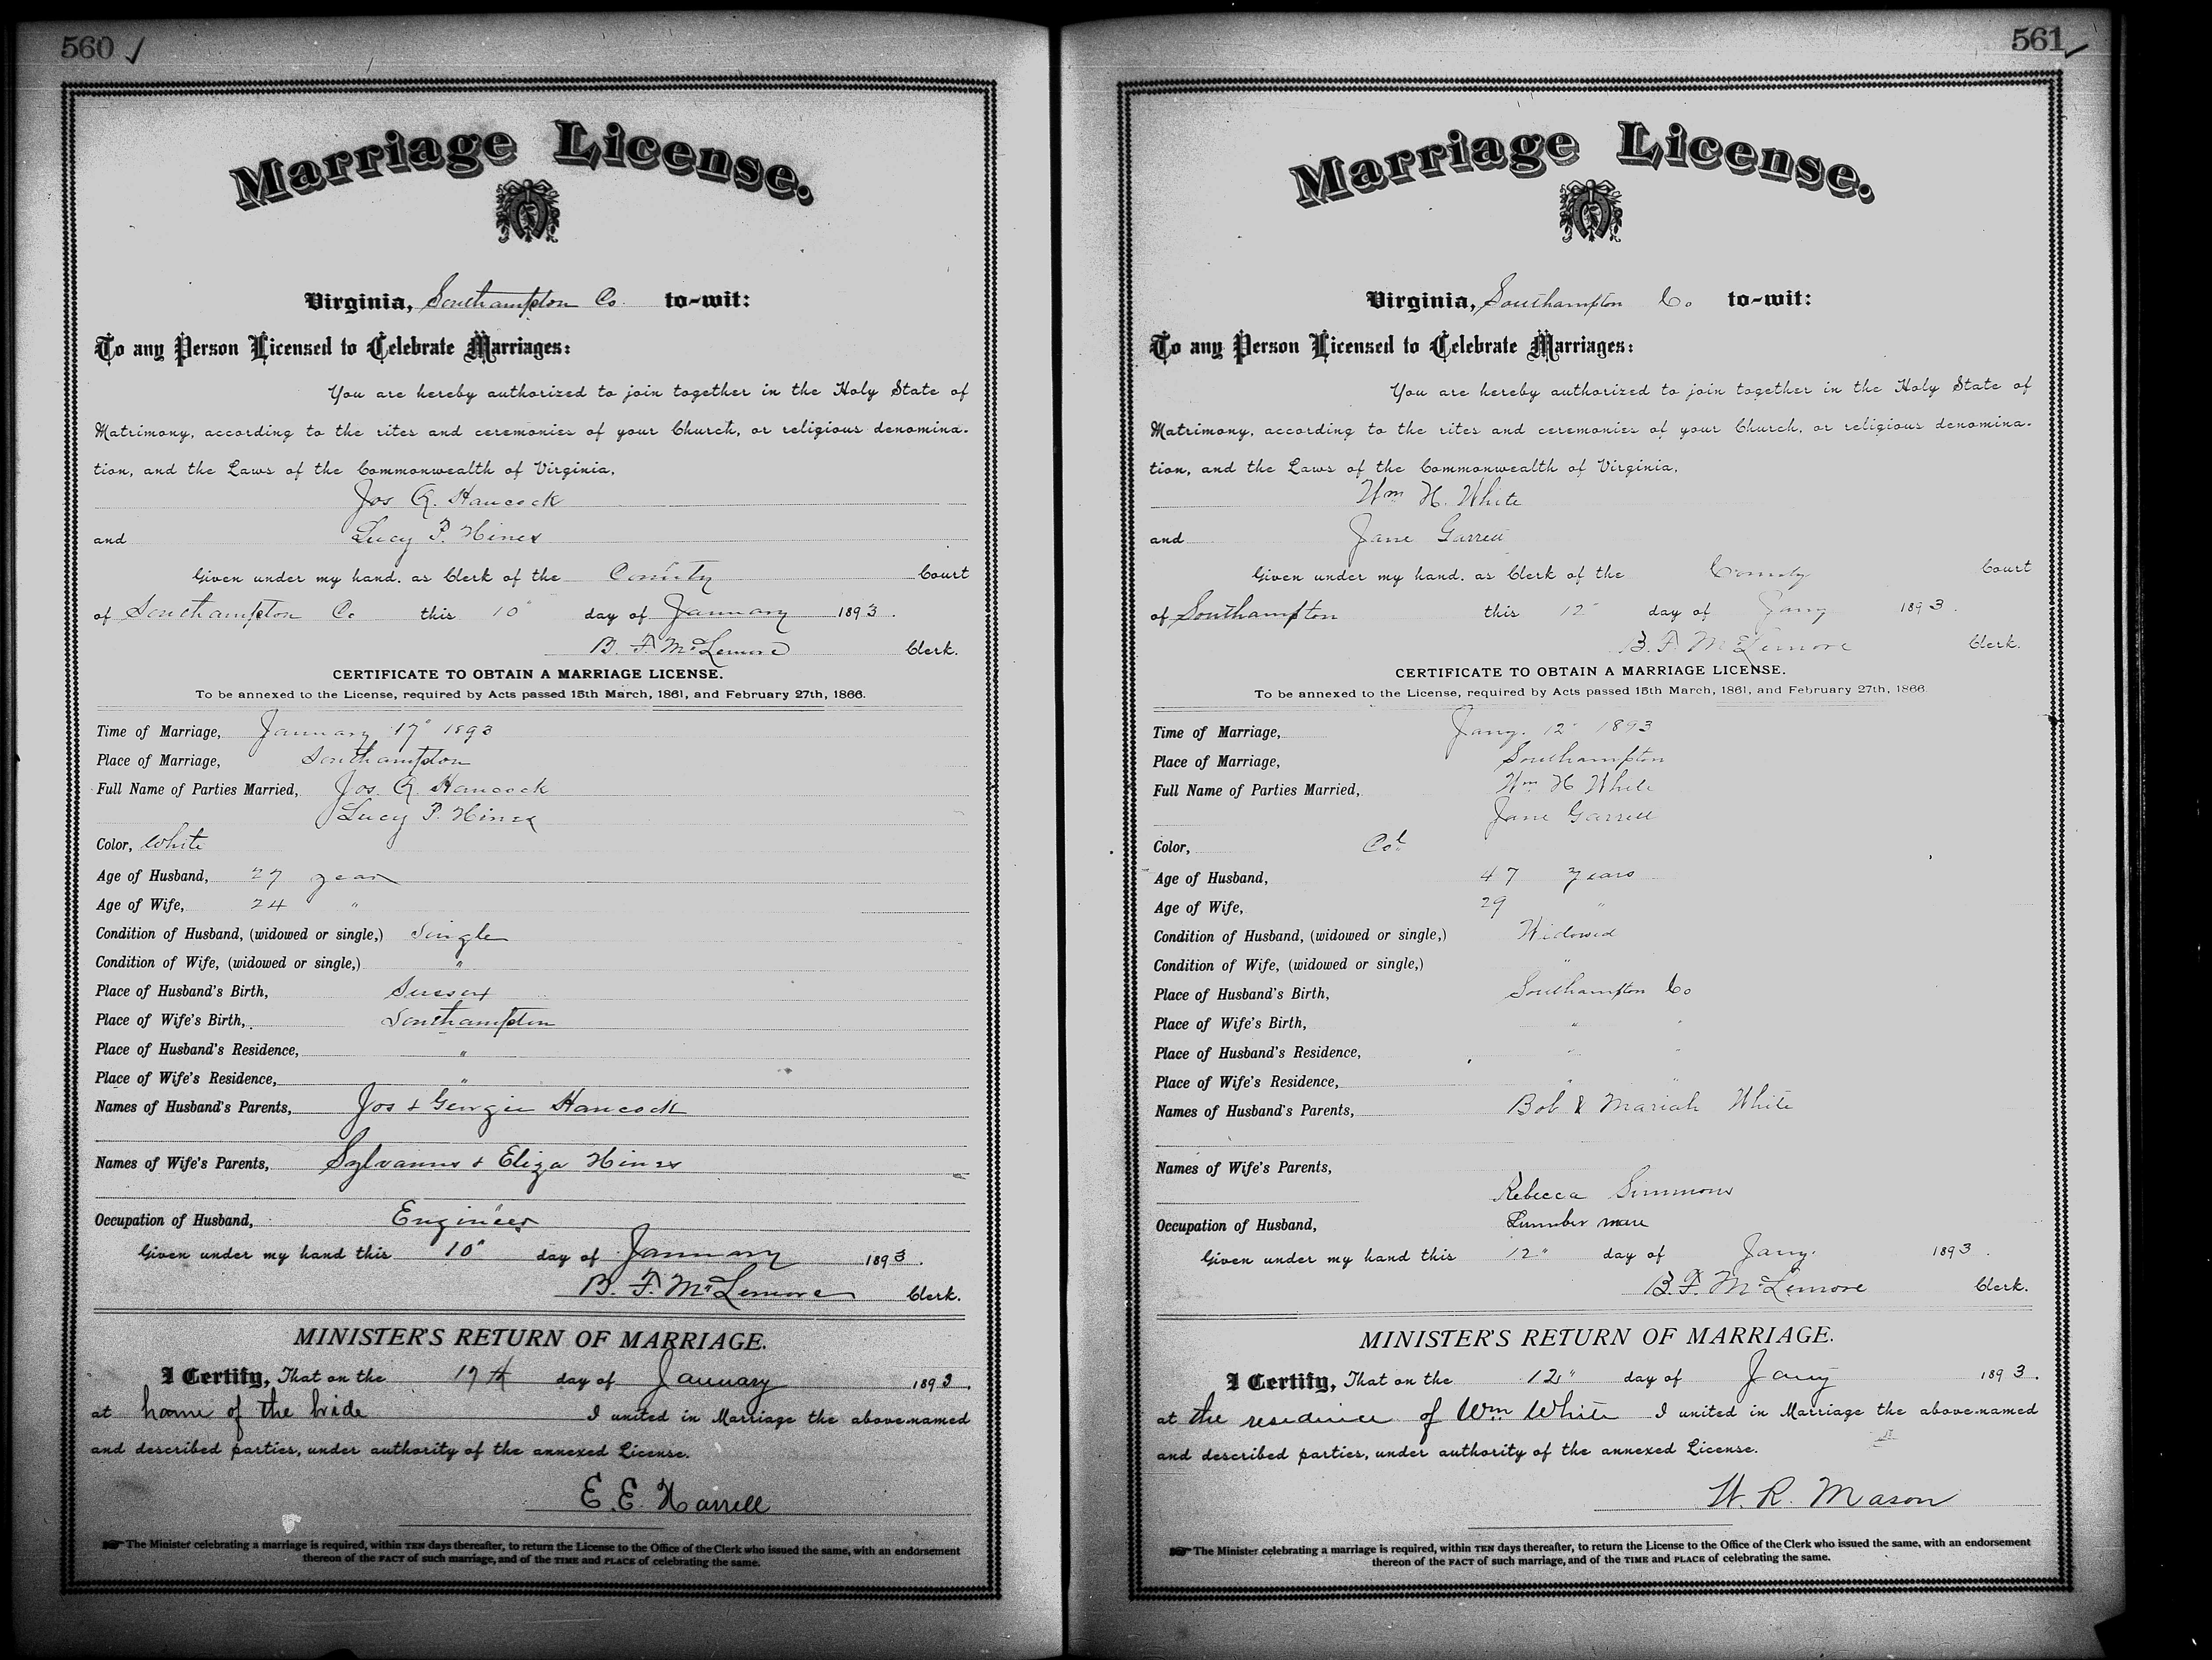 560
Marriage License.
Virginia, Southampton Co. to-wit:
To any Person Licensed to Celebrate Marriages:
You are hereby authorized to join together in the Holy State of
Matrimony, according to the rites and ceremonies of your Church, or religious denomina-
tion, and the Laws of the Commonwealth of Virginia.
Jos Q. Hancock
and Lucy P. Hines
Given under my hand, as Clerk of the County Court
of Southampton Co this 10" day of January 1893.
B. F. McLemore Clerk.
CERTIFICATE TO OBTAIN A MARRIAGE LICENSE.
To be annexed to the License, required by Acts passed 15th March, 1861, and February 27th, 1866.
Time of Marriage, January 17" 1893
Place of Marriage, Southampton
Full Name of Parties Married, Jos. Q. Hancock
Lucy P. Hines
Color, White
Age of Husband, 27 years
Age of Wife, 24 "
Condition of Husband, (widowed or single,) Single
Condition of Wife, (widowed or single,) "
Place of Husband's Birth, Sussex
Place of Wife's Birth, Southampton
Place of Husband's Residence, "
Place of Wife's Residence, "
Names of Husband's Parents, Jos & Georgie Hancock
Names of Wife's Parents, Sylvanus & Eliza Hines
Occupation of Husband, Engineer
Given under my hand this 10" day of January 1893.
B. F. McLemore Clerk.
MINISTER'S RETURN OF MARRIAGE.
I Certify, That on the 17th day of January 1893.
at home of the bride I united in Marriage the above-named
and described parties, under authority of the annexed License.
E. E. Harrell
The Minister celebrating a marriage is required, within TEN days thereafter, to return the License to the Office of the Clerk who issued the same, with an endorsement
thereon of the FACT of such marriage, and of the TIME and PLACE of celebrating the same.
561
Marriage License.
Virginia, Southampton Co to-wit:
To any Person Licensed to Celebrate Marriages:
You are hereby authorized to join together in the Holy State of
Matrimony, according to the rites and ceremonies of your Church, or religious denomina-
tion, and the Laws of the Commonwealth of Virginia.
Wm H. White
and Jane Garrell
Given under my hand, as Clerk of the County Court
of Southampton this 12" day of Jany 1893.
B. F. McLemore Clerk.
CERTIFICATE TO OBTAIN A MARRIAGE LICENSE.
To be annexed to the License, required by Acts passed 15th March, 1861, and February 27th, 1866.
Time of Marriage, Jany. 12" 1893
Place of Marriage, Southampton
Full Name of Parties Married, Wm H White
Jane Garrell
Color, Cold
Age of Husband, 47 years
Age of Wife, 29 "
Condition of Husband, (widowed or single,) Widowed
Condition of Wife, (widowed or single,) "
Place of Husband's Birth, Southampton Co
Place of Wife's Birth, " "
Place of Husband's Residence, " "
Place of Wife's Residence, " "
Names of Husband's Parents, Bob & Mariah White
Names of Wife's Parents,
Rebecca Simmons
Occupation of Husband, Lumber man
Given under my hand this 12" day of Jany. 1893.
B. F. McLemore Clerk.
MINISTER'S RETURN OF MARRIAGE.
I Certify, That on the 12" day of Jany 1893.
at the residence of Wm White I united in Marriage the above-named
and described parties, under authority of the annexed License.
W. R. Mason
The Minister celebrating a marriage is required, within TEN days thereafter, to return the License to the Office of the Clerk who issued the same, with an endorsement
thereon of the FACT of such marriage, and of the TIME and PLACE of celebrating the same.